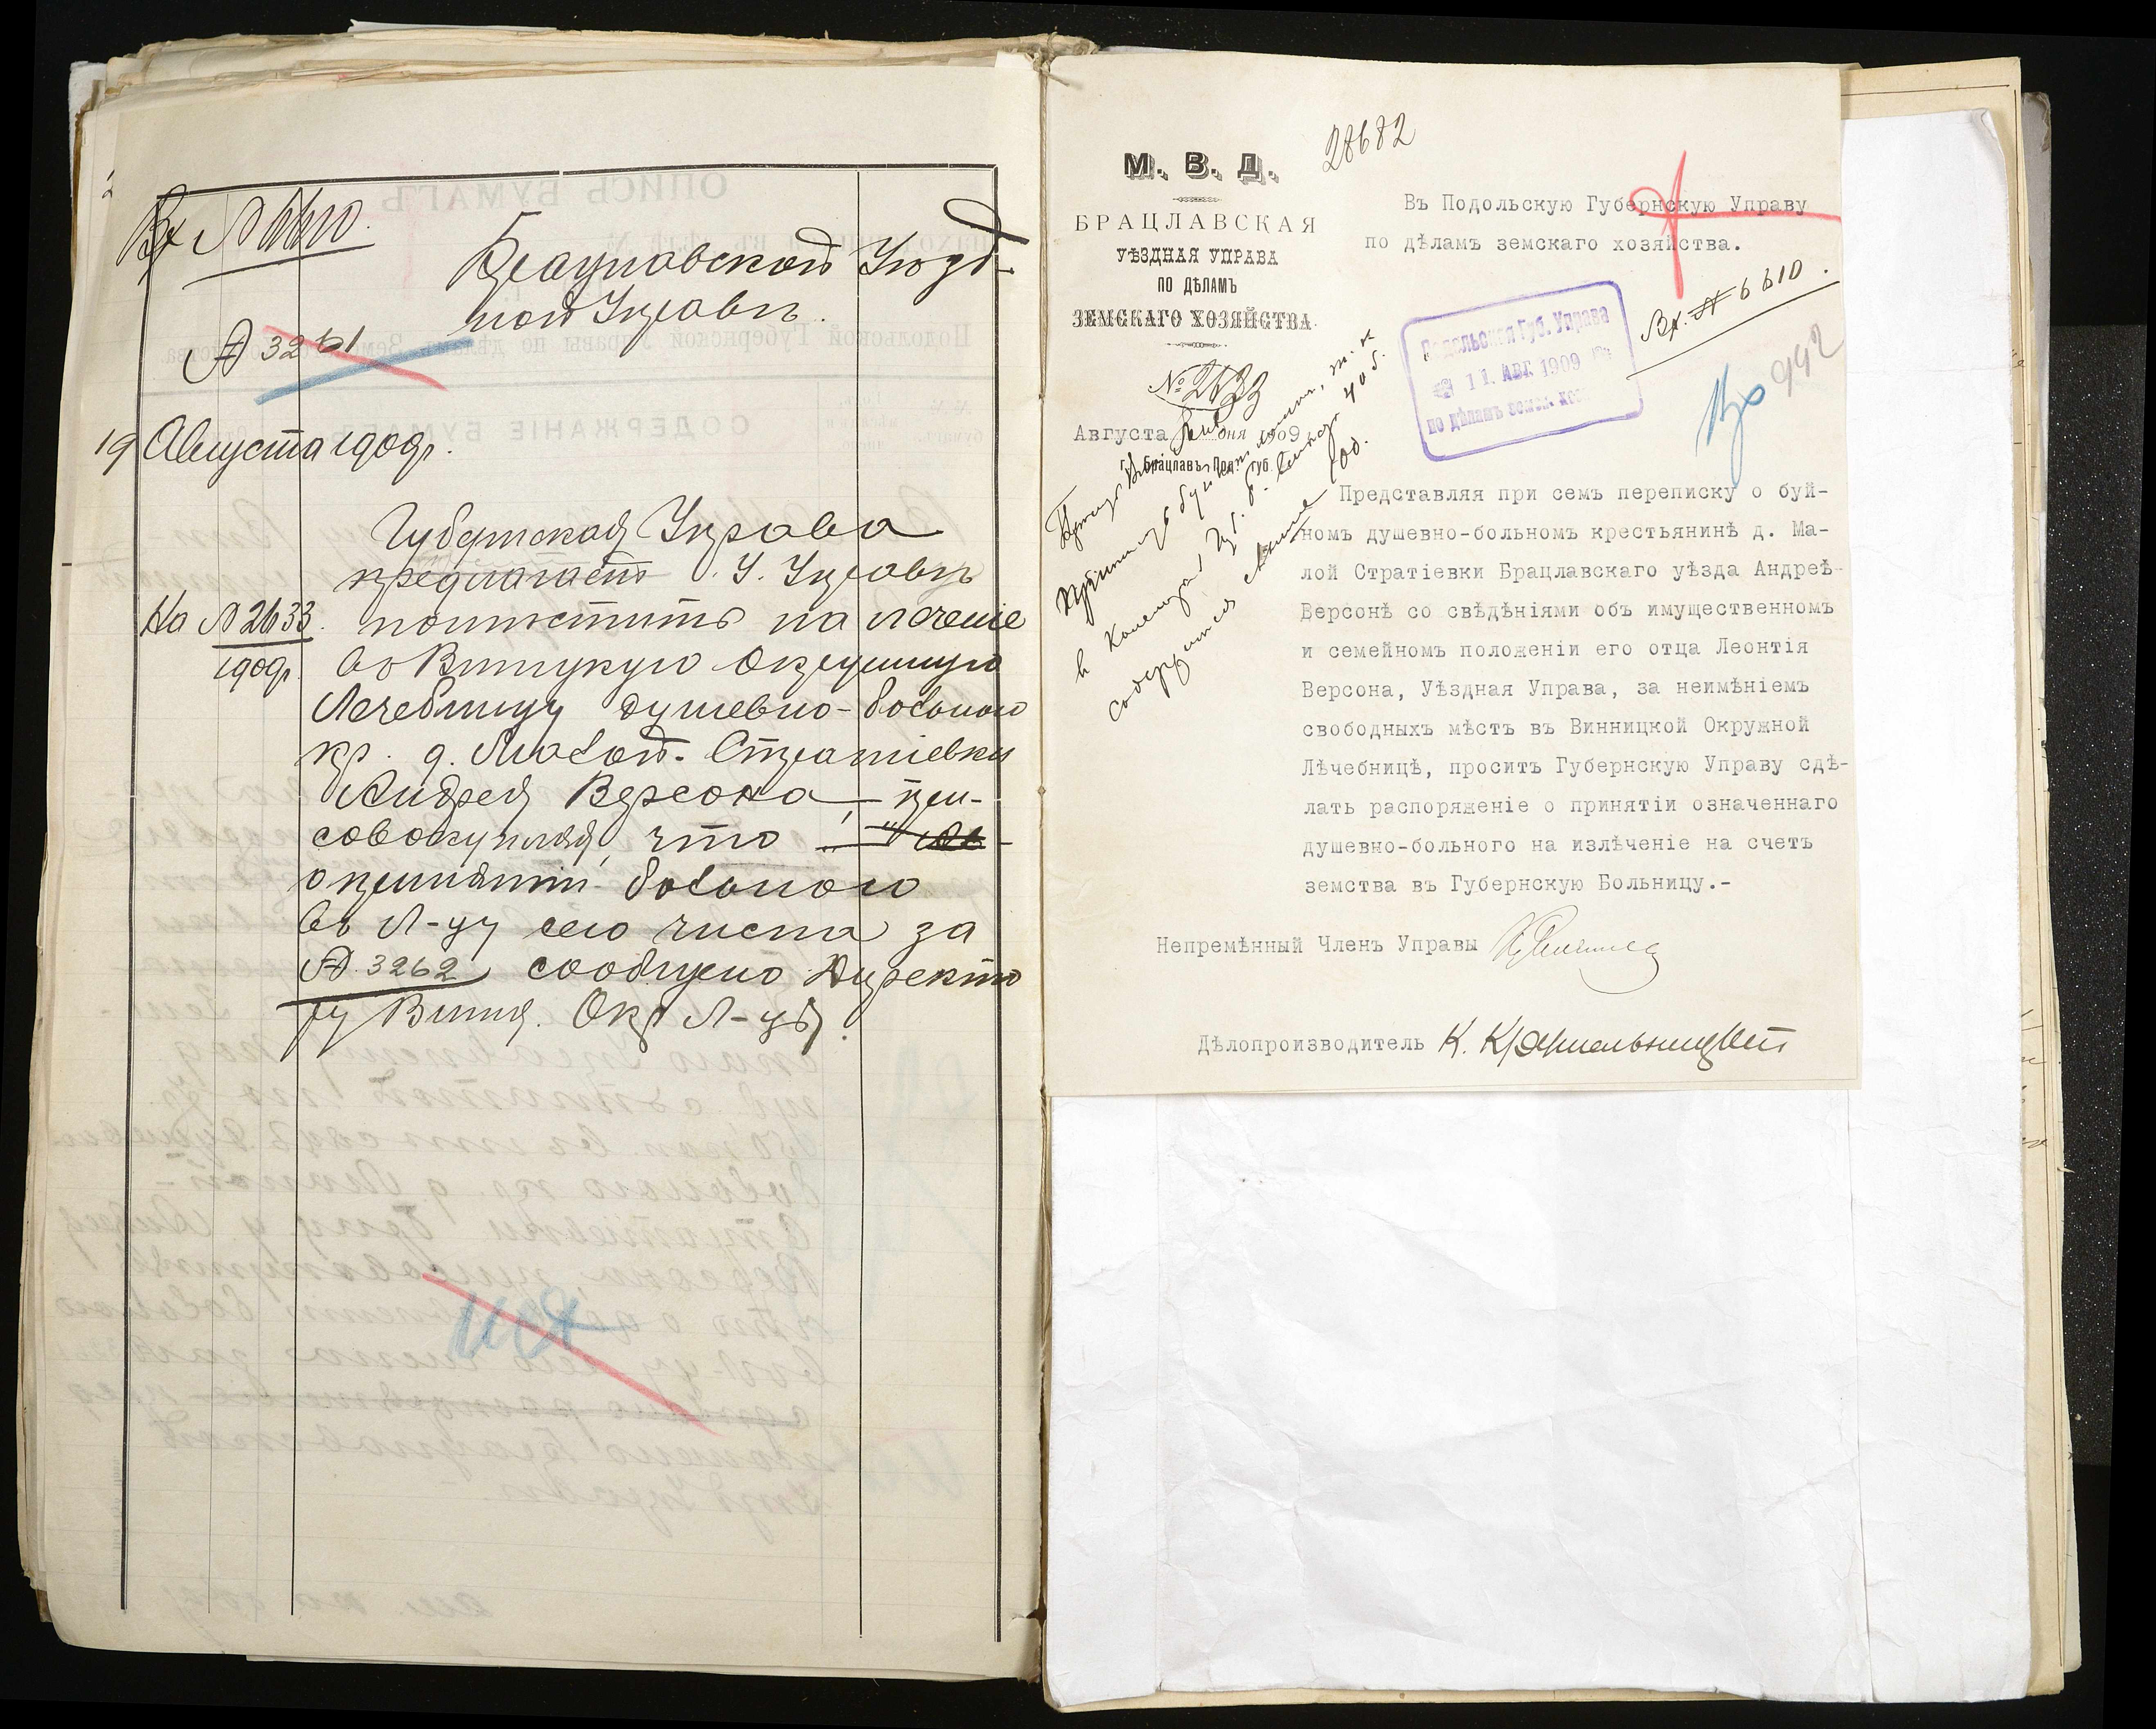 Вх №6610.
Брацлавской Уѣзд-
ной Управѣ.
№ 3261
19 Августа 1909 г.
Губернская Управа
предлагаетъ У. Управѣ
На № 2633
1909 г.
помѣстить на леченіе
въ Винницкую Окружную
Лечебницу душевно-больного
кр. д. Малой-Стратіевки
Андрея Версона, при-
совокупляя, что
о принятіи больного
въ Л-цу сего числа за
№ 3262 сообщено Директо
ру Винн. Окр Л-цы.
28682
М. В. Д.
БРАЦЛАВСКАЯ
УѢЗДНАЯ УПРАВА
ПО ДѢЛАМЪ
ЗЕМСКАГО ХОЗЯЙСТВА.
№ 2633
Августа дня 1909
г. Брацлавъ, Под. губ.
Въ Подольскую Губернскую Управу
по дѣламъ земскаго хозяйства.
Вх. № 6610.
Подольская Губ. Управа
11. АВГ. 1909
по дѣламъ земск. хоз.
442
Представляя при семъ переписку о буй-
номъ душевно-больномъ крестьянинѣ д. Ма-
лой Стратіевки Брацлавскаго уѣзда Андреѣ-
Версонѣ со свѣдѣніями объ имущественномъ
и семейномъ положеніи его отца Леонтія
Версона, Уѣздная Управа, за неимѣніемъ
свободныхъ мѣстъ въ Винницкой Окружной
Лѣчебницѣ, проситъ Губернскую Управу сдѣ-
лать распоряженіе о принятіи означеннаго
душевно-больного на излѣченіе на счетъ
земства въ Губернскую Больницу.-
Непремѣнный Членъ Управы
Дѣлопроизводитель К.